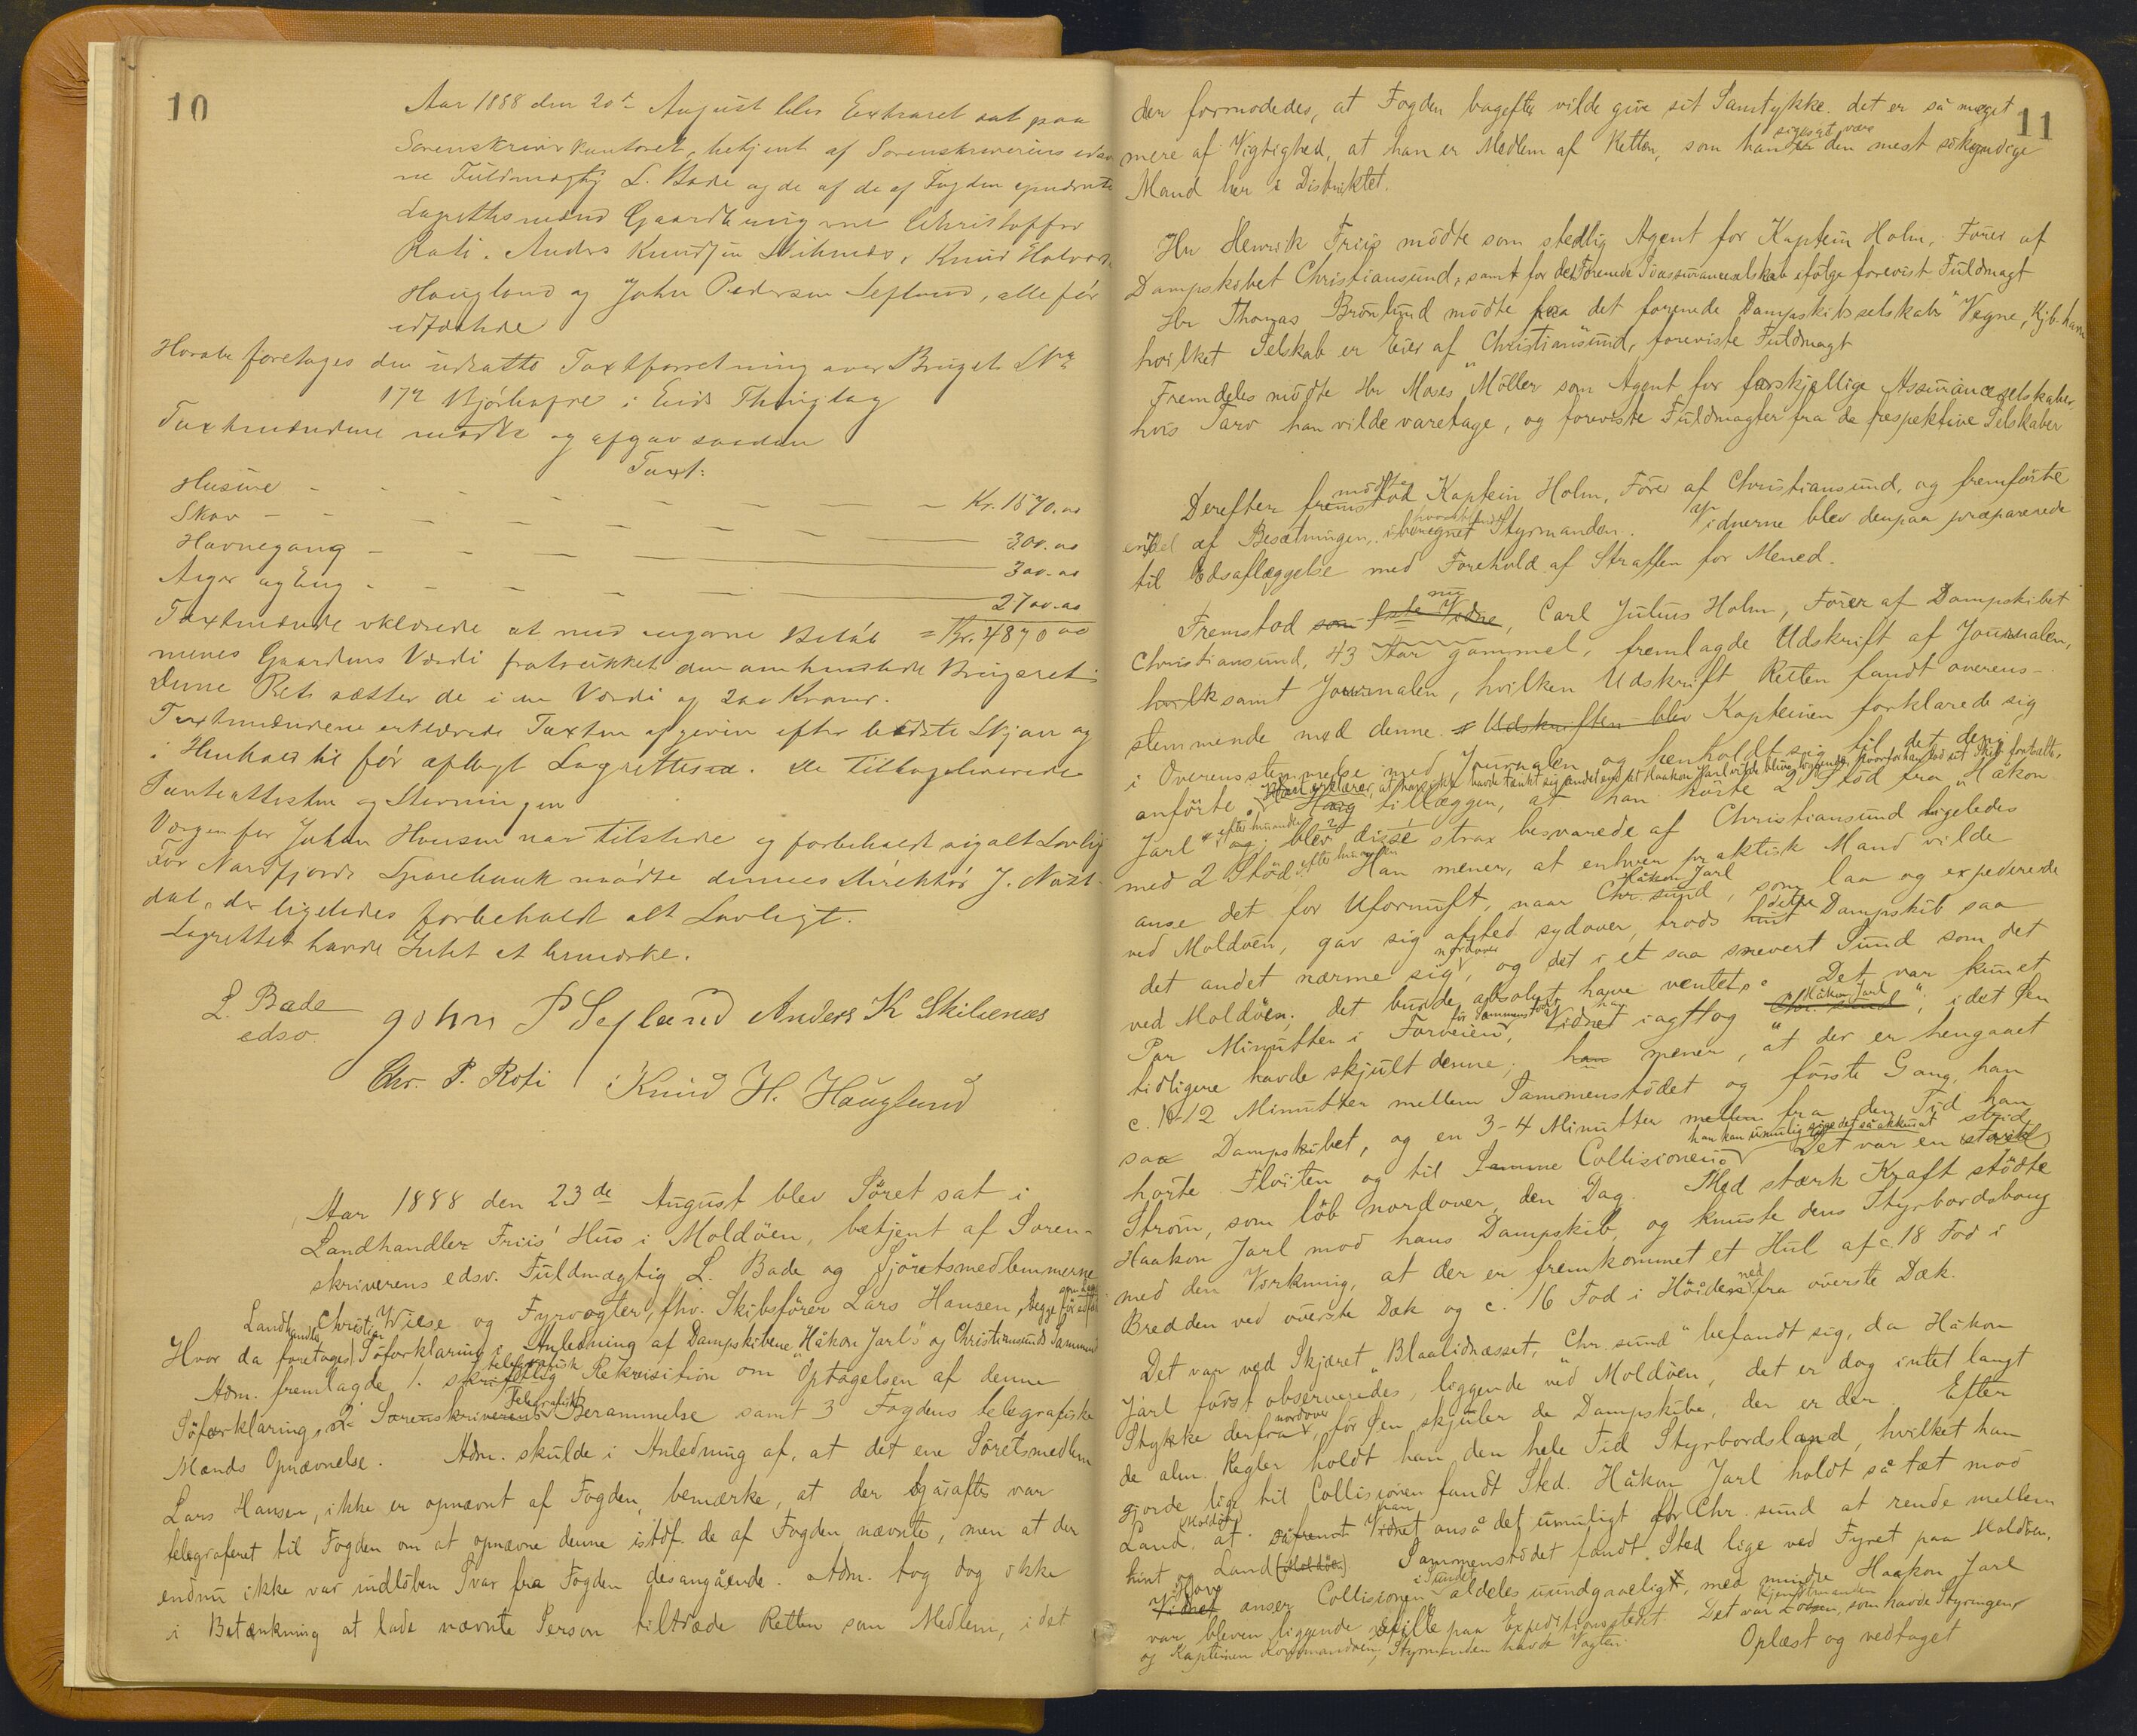 10
Aar 1888 den 20de August blev Extraret sat paa
Sorenskriverkontoret, betjent af Sorenskriverens edsv
ne Fuldmægtig L. Bade og de af de af Fogden opnævnte
Lagrettesmænd Gaardbrugerne Christoffer
Roti. Anders Knudsen Skilenæs, Knud Halvors.
Hougland og John Pedersen Sefland, alle før
edfæstede
Hvorda foretages den udsatte Taxtforretning over Bruget Lnr
172 Bjørhovde i Eids Thinglag
Taxtmændene mødte og afgav saadan
Taxt:
Husene - - - - - - - Kr. 1570.00
Skov - - - - - - - 300.00
Havnegang - - - - 300.00
Ager og Eng - - - - 2700.00
Taxtmændene erklærede at med angivne Beløb = Kr. 4870 00
menes Gaardens Værdi fratrukket den omhandlede Brugsret
Denne Ret sætter de i en Værdi af 200 Kroner.
Taxtmændene erklærede Taxten afgiven efter bedste Skjøn og
i Henhold til før aflagt Lagrettesed. De tilbageleverede
Panteattesten og Stevningen
Værgen for Johan Hansen var tilstede og forbeholdt sig alt Lovligt
For Nordfjords Sparebank mødte dennes Direktør J. Nøst-
dal, der ligeledes forbeholdt alt Lovligt.
Lagrettet havde Intet at bemærke.
L. Bade
edsv.
John P Sefland Anders K Skilenæs
Chr. P. Roti Knud H. Hauglund
Aar 1888 den 23de August blev Søret sat i
Landhandler Friis' Hus i Moldöen, betjent af Soren-
skriverens edsv. Fuldmægtig L. Bade og Sjøretsmedlemmerne
Landhandler Christian Wiese og Fyrvogter, fhv. Skibsfører Lars Hansen, begge før edf
Hvor da foretages Søforklaring i Anledning af Dampskibene "Håkon Jarl's" og Christiansunds Sammen
Adm. fremlagde 1. skriftlig telegrafisk Rekvisition om Optagelsen af denne
Søforklaring, 2. Sorenskriverens Telegrafisk Berammelse samt 3 Fogdens telegrafiske
Mænds Opnævnelse. Adm. skulde i Anledning af, at det ene Søretsmedlem
Lars Hansen, ikke er opnævnt af Fogden, bemærke, at der igåraftes var
telegraferet til Fogden om at opnævne denne istdf. de af Fogden nævnte, men at der
endnu ikke var indløben Svar fra Fogden desangående. Adm. tog dog ikke
i Betænkning at lade nævnte Person tiltræde Retten som Medlem, idet
11
der formodedes, at Fogden bagefter vilde give sit Samtykke. det er så meget
mere af Vigtighed, at han er Medlem af Retten, som han er siges at være den mest søkyndige
Mand her i Distriktet.
Hr Henrik Friis mödte som stedlig Agent for Kaptein Holm, Förer af
Dampskibet Christiansund, samt for det Forenede Söassuranceselskab ifölge forevist Fuldmagt
Hr Thomas Brönlund mödte paa det forenede Dampskibsselskabs Vegne, Kjb.havn
hvilket Selskab er Eier af "Christiansund", foreviste Fuldmagt
Fremdeles mödte Hr Moses Möller som Agent for forskjellige Assuranceselskaber,
hvis Tarv han vilde varetage, og foreviste Fuldmagter fra de respektive Selskaber
Derefter fremstod mödte Kaptein Holm, Förer af Christiansund, og fremförte
endel af Besætningen, iberegnet Styrmanden. Vidnerne blev derpaa præparerede
til Edsaflæggelse med Forehold af Straffen for Mened.
Fremstod som förste Vidne nu, Carl Julius Holm, Förer af Dampskibet
Christiansund, 43 Aar gammel, fremlagde Udskrift af Journalen,
hvilk samt Journalen, hvilken Udskrift Retten fandt overens-
stemmende med denne. Udskriften blev Kapteinen forklarede sig
i Overensstemmelse med Journalen og henholdt sig til det deri
anförte. Han erklærer, at han ikke havde tænkt sig andet end at Haakon Jarl vilde blive liggende, hvorfor han lod sit Skib fortsætte,
Han tillæggen, at han hörte 2 Stöd fra "Håkon
Jarl" efter hinanden og blev disse strax besvarede af Christiansund ligeledes
med 2 Stöd efter hinanden. Han mener, at enhver praktisk Mand vilde
anse det for Ufornuft, naar Chr.sund Håkon Jarl, som laa og expederede
ved Moldöen, gav sig afsted sydover, trods hint dette Dampskib saa
det andet nærme sig nordover, og det i et saa snevert Sund som det
ved Moldöen; det burde absolut have ventet. Det var kun et
Par Minutter i Forveien, för Sammenstödet Vidnet han iagttog Chr.sund "Håkon Jarl"; idet Öen
tidligere havde skjult denne; han mener, at der er hengaaet
c. 10-12 Minutter mellem Sammenstödet og förste Gang, han
saa Dampskibet, og en 3-4 Minutter mellem fra den Tid han
hørte Flöiten og til Samme Collisionen. han kan umulig sige det så akkurat Det var en stærk strid
Ström, som löb nordover, den Dag. Med stærk Kraft stödte
Haakon Jarl mod hans Dampskib, og knuste dens Styrbordsboug
med den Virkning, at der er fremkommet et Hul af c. 18 Fod i
Bredden ved överste Dæk og c. 16 Fod i Höiden ned fra överste Dæk.
Det var ved Skjæret "Blaalidnæsset, Chr.sund" befandt sig, da Håkon
Jarl först observeredes, liggende ved Moldöen, det er dog intet langt
Stykke derfra nordover, för Öen skjuler de Dampskibe, der er der. Efter
de alm. Regler holdt han den hele Tid Styrbordsland, hvilket han
gjorde lige til Collisionen fandt Sted. Håkon Jarl holdt så tæt mod
Land, Moldöen at såfremt Vidnet han anså det umuligt for Chr.sund at rende mellem
hint og Land (Moldöen) Sammenstödet fandt Sted lige ved Fyret paa Moldöen.
Vidnet anser Collisionen i Sundet aldeles uundgaaeligt, med mindre Haakon Jarl
var bleven liggende stille paa Expeditionsstedet. Det var Lodsen Kjendtmanden, som havde Styringen
og Kapteinen Kommandoen, Styrmanden havde Vagten. Oplæst og vedtaget